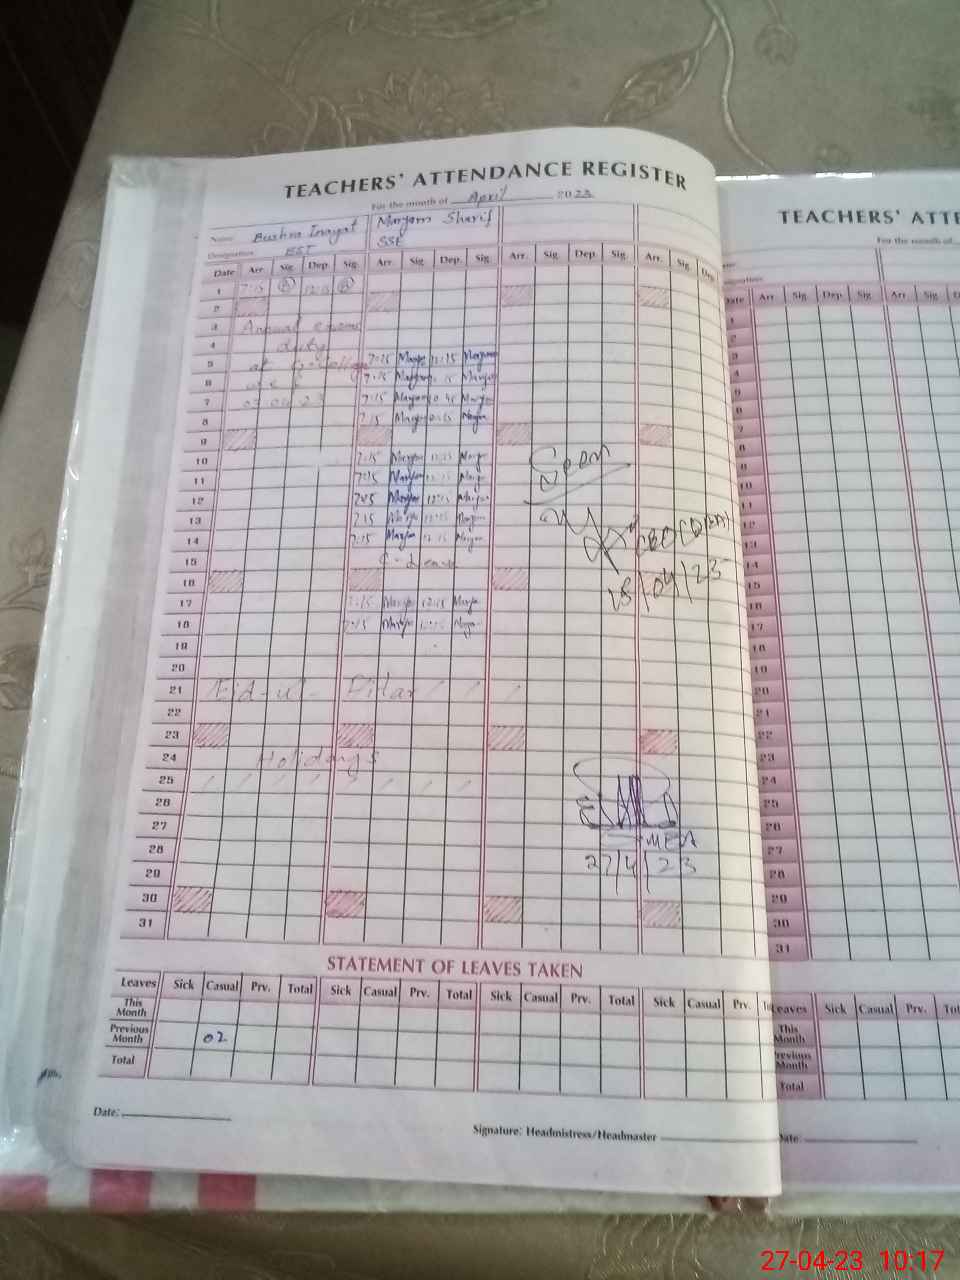 TEACHERS' ATTENDANCE REGISTER
For the month of April 2023
Name Bushra Inayat Maryam Sharif
Designation EST SSE
Date Arr. Sig. Dep. Sig. Arr. Sig. Dep. Sig. Arr. Sig. Dep. Sig. Arr. Sig. Dep.
1 7:15 B 12:15 B
2
3 Annual exams
4 duty
5 at 7:15 Maryam 12:15 Maryam
6 w.e.f 7:15 Maryam 15 Maryam
7 03.04.23 7:15 Maryam 10:45 Maryam
8 7:15 Maryam Maryam
9
10 7:15 Maryam 12:15 Maryam
11 7:15 Maryam 12:15 Maryam
12 7:15 Maryam 12:15 Maryam
13 7:15 Maryam 12:15 Maryam
14 7:15 Maryam 12:15 Maryam
15 C-Leave
16
17 7:15 Maryam 12:15 Maryam
18 7:15 Maryam 12:15 Maryam
19
20
21 Eid-ul-Fitar
22
23
24 Holidays
25
26
27
28
29
30
31
Seen
CEO (DEA)
18/04/23
MEA
27/4/23
STATEMENT OF LEAVES TAKEN
Leaves Sick Casual Prv. Total Sick Casual Prv. Total Sick Casual Prv. Total Sick Casual Prv.
This Month
Previous Month 02
Total
Date:
Signature: Headmistress/Headmaster
TEACHERS' ATTE
For the month of
Date Arr. Sig. Dep. Sig. Arr. Sig.
1
2
3
4
5
6
7
8
9
10
11
12
13
14
15
16
17
18
19
20
21
22
23
24
25
26
27
28
29
30
31
Leaves Sick Casual Prv.
This Month
Previous Month
Total
Date:
27-04-23 10:17